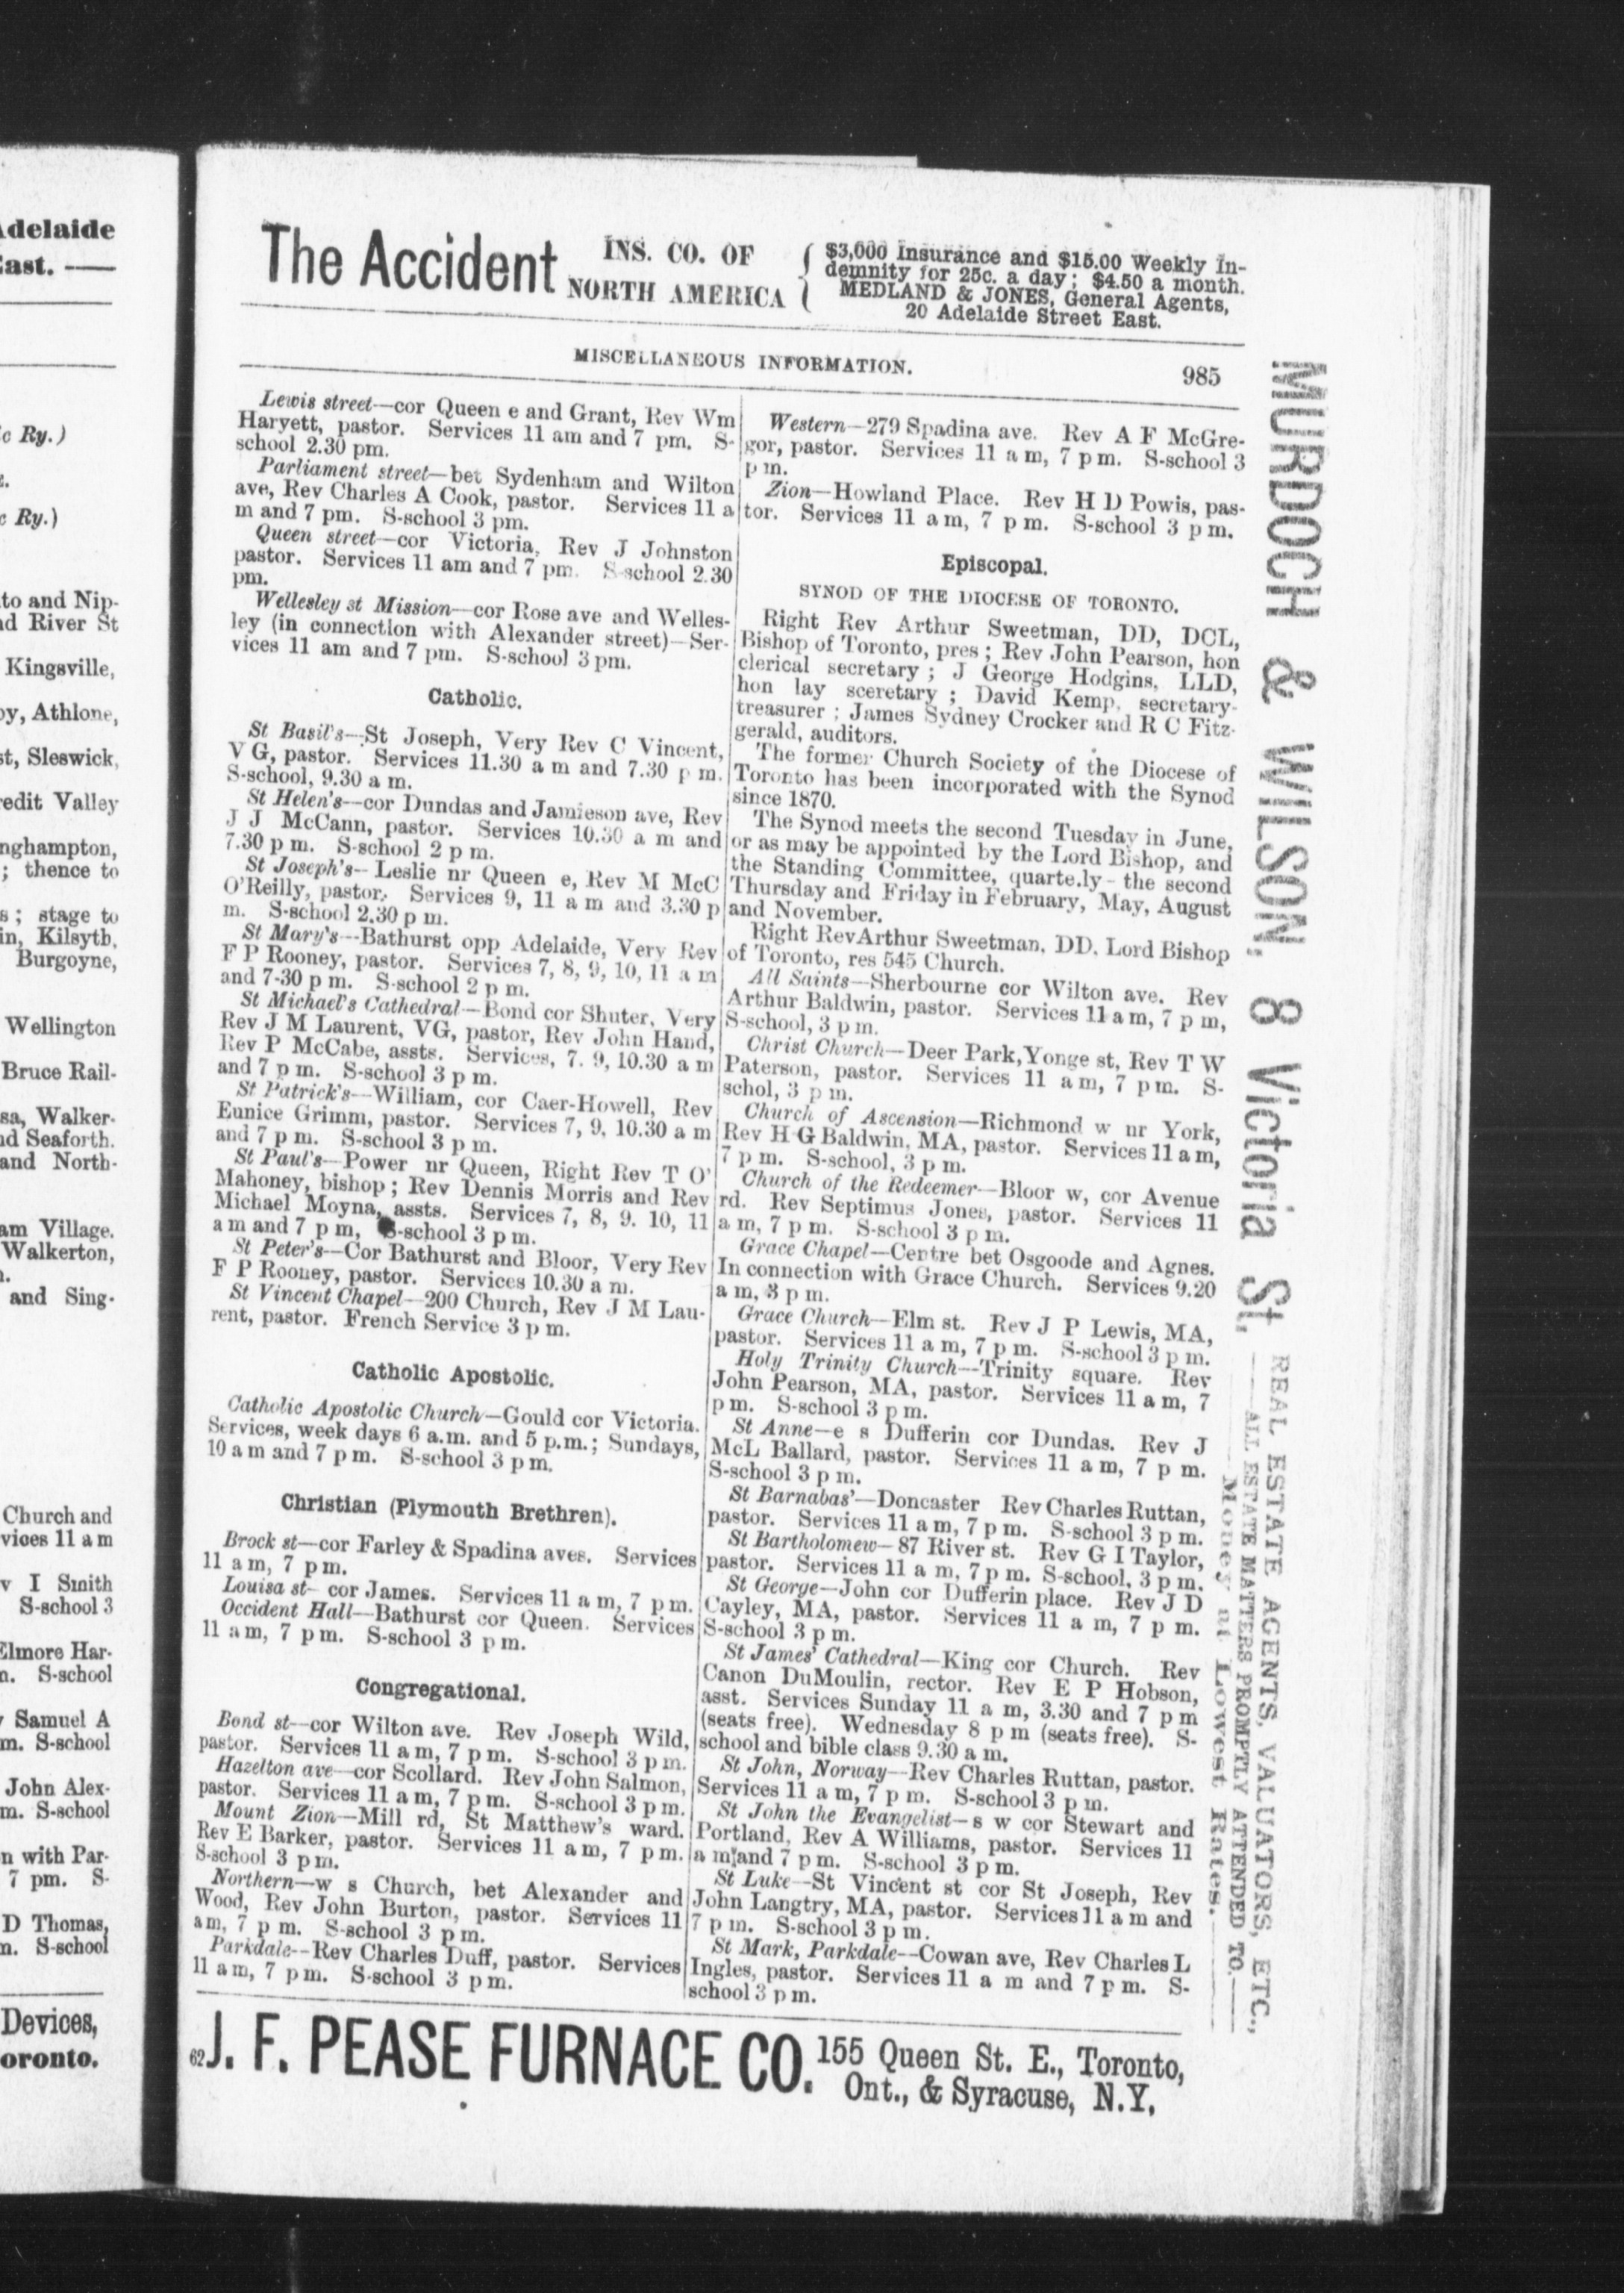 Adelaide
East. —
Ry.)
Ry.)
to and Nip-
River St
Kingsville,
Athlone,
Sleswick,
Valley
thence to
; stage to
Kilsyth,
Burgoyne,
Wellington
Bruce Rail-
Walker-
Seaforth.
and North-
Village.
Walkerton,
and Sing-
Church and
11 a m
I Smith
S-school 3
Elmore Har-
S-school
Samuel A
m. S-school
John Alex-
m. S-school
with Par-
7 pm. S-
D Thomas,
S-school
Devices,
The Accident INS. CO. OF NORTH AMERICA
$3,000 Insurance and $15.00 Weekly In-
demnity for 25c. a day; $4.50 a month.
MEDLAND & JONES, General Agents,
20 Adelaide Street East.
MISCELLANEOUS INFORMATION. 985
Lewis street—cor Queen e and Grant, Rev Wm
Haryett, pastor. Services 11 am and 7 pm. S-
school 2.30 pm.
Parliament street—bet Sydenham and Wilton
ave, Rev Charles A Cook, pastor. Services 11 a
m and 7 pm. S-school 3 pm.
Queen street—cor Victoria, Rev J Johnston
pastor. Services 11 am and 7 pm. S-school 2.30
pm.
Wellesley st Mission—cor Rose ave and Welles-
ley (in connection with Alexander street)—Ser-
vices 11 am and 7 pm. S-school 3 pm.
Catholic.
St Basil's—St Joseph, Very Rev C Vincent,
V G, pastor. Services 11.30 a m and 7.30 p m.
S-school, 9.30 a m.
St Helen's—cor Dundas and Jamieson ave, Rev
J J McCann, pastor. Services 10.30 a m and
7.30 p m. S-school 2 p m.
St Joseph's—Leslie nr Queen e, Rev M McC
O'Reilly, pastor. Services 9, 11 a m and 3.30 p
m. S-school 2.30 p m.
St Mary's—Bathurst opp Adelaide, Very Rev
F P Rooney, pastor. Services 7, 8, 9, 10, 11 a m
and 7-30 p m. S-school 2 p m.
St Michael's Cathedral—Bond cor Shuter, Very
Rev J M Laurent, VG, pastor, Rev John Hand,
Rev P McCabe, assts. Services, 7. 9, 10.30 a m
and 7 p m. S-school 3 p m.
St Patrick's—William, cor Caer-Howell, Rev
Eunice Grimm, pastor. Services 7, 9, 10.30 a m
and 7 p m. S-school 3 p m.
St Paul's—Power nr Queen, Right Rev T O'
Mahoney, bishop; Rev Dennis Morris and Rev
Michael Moyna, assts. Services 7, 8, 9. 10, 11
a m and 7 p m, S-school 3 p m.
St Peter's—Cor Bathurst and Bloor, Very Rev
F P Rooney, pastor. Services 10.30 a m.
St Vincent Chapel—200 Church, Rev J M Lau-
rent, pastor. French Service 3 p m.
Catholic Apostolic.
Catholic Apostolic Church—Gould cor Victoria.
Services, week days 6 a.m. and 5 p.m.; Sundays,
10 a m and 7 p m. S-school 3 p m.
Christian (Plymouth Brethren).
Brock st—cor Farley & Spadina aves. Services
11 a m, 7 p m.
Louisa st—cor James. Services 11 a m, 7 p m.
Occident Hall—Bathurst cor Queen. Services
11 a m, 7 p m. S-school 3 p m.
Congregational.
Bond st—cor Wilton ave. Rev Joseph Wild,
pastor. Services 11 a m, 7 p m. S-school 3 p m.
Hazelton ave—cor Scollard. Rev John Salmon,
pastor. Services 11 a m, 7 p m. S-school 3 p m.
Mount Zion—Mill rd, St Matthew's ward.
Rev E Barker, pastor. Services 11 am, 7 p m.
S-school 3 p m.
Northern—w s Church, bet Alexander and
Wood, Rev John Burton, pastor. Services 11
am, 7 p m. S-school 3 p m.
Parkdale—Rev Charles Duff, pastor. Services
11 a m, 7 p m. S-school 3 p m.
Western—279 Spadina ave. Rev A F McGre-
gor, pastor. Services 11 a m, 7 p m. S-school 3
p m.
Zion—Howland Place. Rev H D Powis, pas-
tor. Services 11 a m, 7 p m. S-school 3 p m.
Episcopal.
SYNOD OF THE DIOCESE OF TORONTO.
Right Rev Arthur Sweetman, DD, DCL,
Bishop of Toronto, pres; Rev John Pearson, hon
clerical secretary; J George Hodgins, LLD,
hon lay sceretary; David Kemp, secretary-
treasurer; James Sydney Crocker and R C Fitz-
gerald, auditors.
The former Church Society of the Diocese of
Toronto has been incorporated with the Synod
since 1870.
The Synod meets the second Tuesday in June,
or as may be appointed by the Lord Bishop, and
the Standing Committee, quarte.ly—the second
Thursday and Friday in February, May, August
and November.
Right Rev Arthur Sweetman, DD, Lord Bishop
of Toronto, res 545 Church.
All Saints—Sherbourne cor Wilton ave. Rev
Arthur Baldwin, pastor. Services 11 a m, 7 p m,
S-school, 3 p m.
Christ Church—Deer Park, Yonge st, Rev T W
Paterson, pastor. Services 11 am, 7 p m. S-
schol, 3 p m.
Church of Ascension—Richmond w nr York,
Rev H G Baldwin, MA, pastor. Services 11 a m,
7 p m. S-school, 3 p m.
Church of the Redeemer—Bloor w, cor Avenue
rd. Rev Septimus Jones, pastor. Services 11
a m, 7 p m. S-school 3 p m.
Grace Chapel—Centre bet Osgoode and Agnes.
In connection with Grace Church. Services 9.20
a m, 3 p m.
Grace Church—Elm st. Rev J P Lewis, MA,
pastor. Services 11 a m, 7 p m. S-school 3 p m.
Holy Trinity Church—Trinity square. Rev
John Pearson, MA, pastor. Services 11 a m, 7
p m. S-school 3 p m.
St Anne—e s Dufferin cor Dundas. Rev J
McL Ballard, pastor. Services 11 a m, 7 p m.
S-school 3 p m.
St Barnabas'—Doncaster Rev Charles Ruttan,
pastor. Services 11 a m, 7 p m. S-school 3 p m.
St Bartholomew—87 River st. Rev G I Taylor,
pastor. Services 11 a m, 7 p m. S-school, 3 p m.
St George—John cor Dufferin place. Rev J D
Cayley, MA, pastor. Services 11 a m, 7 p m.
S-school 3 p m.
St James' Cathedral—King cor Church. Rev
Canon DuMoulin, rector. Rev E P Hobson,
asst. Services Sunday 11 a m, 3.30 and 7 p m
(seats free). Wednesday 8 p m (seats free). S-
school and bible class 9.30 a m.
St John, Norway—Rev Charles Ruttan, pastor.
Services 11 a m, 7 p m. S-school 3 p m.
St John the Evangelist—s w cor Stewart and
Portland, Rev A Williams, pastor. Services 11
a m and 7 p m. S-school 3 p m.
St Luke—St Vincent st cor St Joseph, Rev
John Langtry, MA, pastor. Services 11 a m and
7 p m. S-school 3 p m.
St Mark, Parkdale—Cowan ave, Rev Charles L
Ingles, pastor. Services 11 a m and 7 p m. S-
school 3 p m.
MURDOCH & WILSON, 8 Victoria St.
REAL ESTATE AGENTS, VALUATORS, ETC.,
—ALL ESTATE MATTERS PROMPTLY ATTENDED TO.—
Money at Lowest Rates.
62 J. F. PEASE FURNACE CO. 155 Queen St. E., Toronto,
Ont., & Syracuse, N.Y.